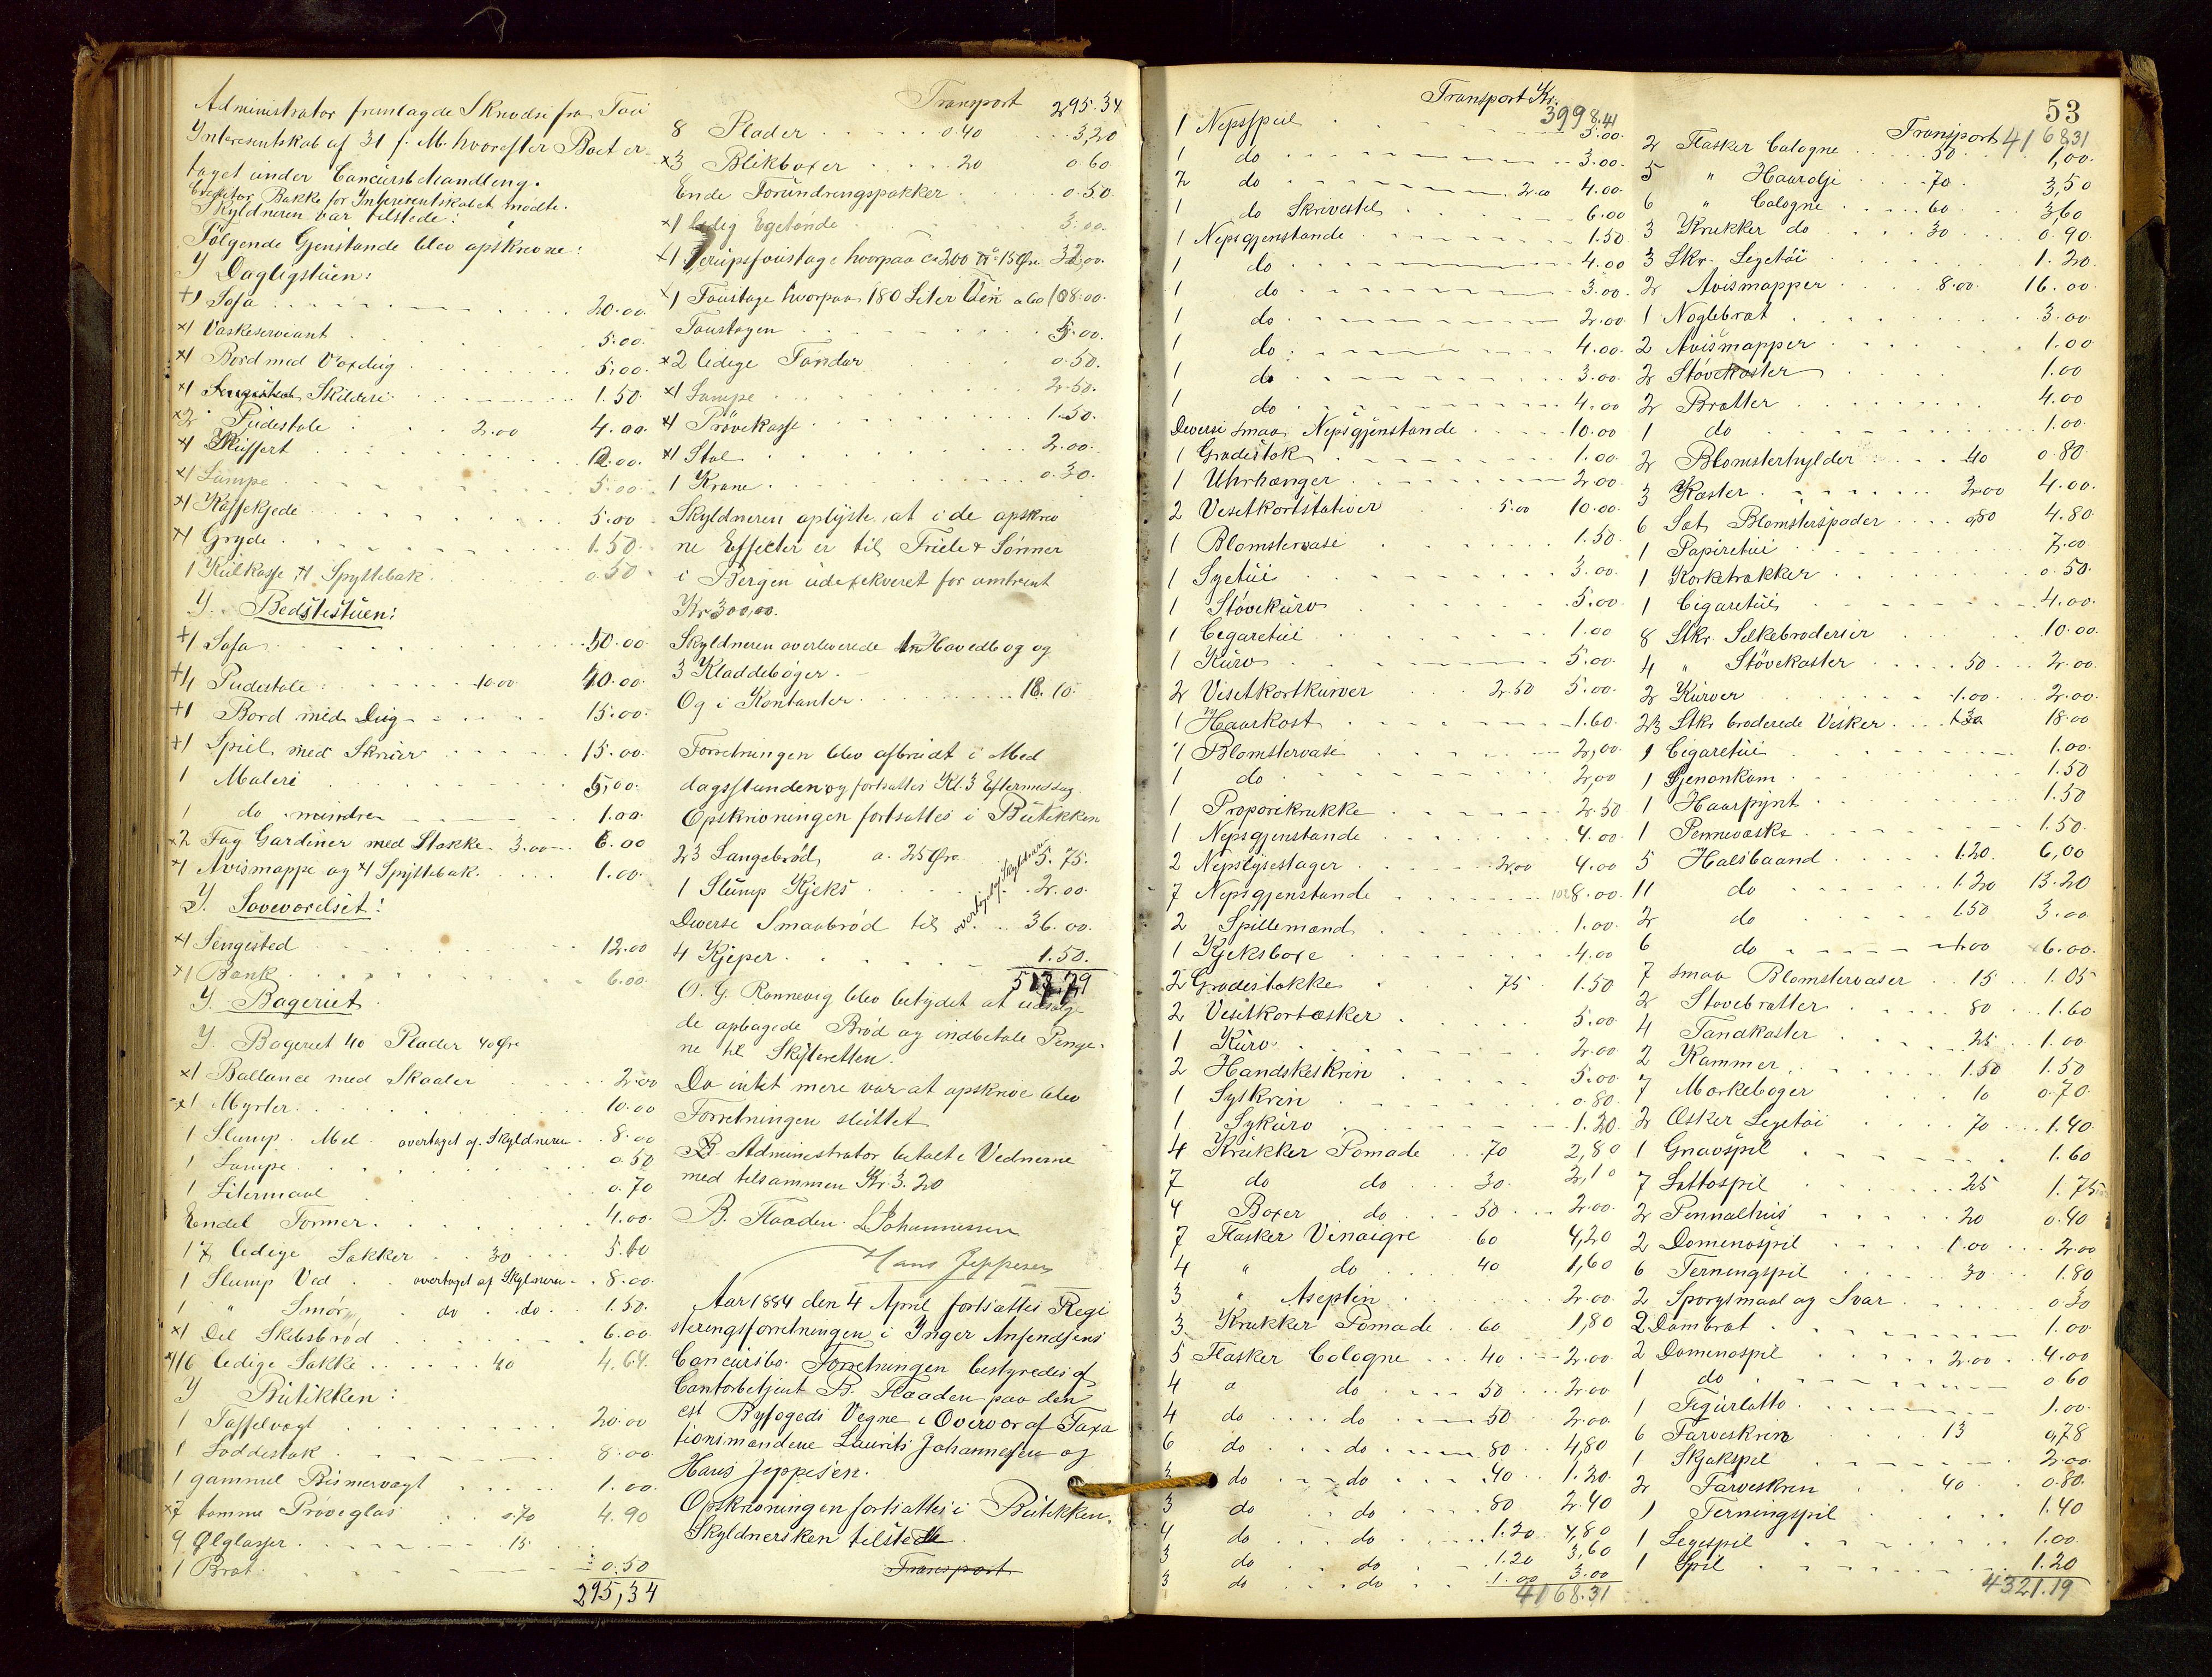 Administrator fremlagde Skrivelse fra
Interesentskab af 31 f. M. hvorefter Boet er
taget under Concursbehandling.
Creditor Bakke for Interesentskabet mødte.
Skyldneren var tilstede:
Følgende Gjenstande blev opskrevne:
I Dagligstuen:
+1 Sofa 20.00
x1 Vaskeservant 5.00
x1 Bord med Voxdug 5,00
x1 Skilderi 1.50
x2 Pudestole 2.00 4.00
x1 Kuffert
x1 Lampe 5.00
x1 Kaffekjede 5.00
x1 Gryde 1.50
1 Kulkasse, x1 Spyttebak 0.50
I Bedstestuen:
+1 Sofa 50.00
+4 Pudestole 10.00 40.00
+1 Bord med Dug 15.00
+1 Speil med Skruer 15.00
1 Maleri 5,00
1 do mindre 1.00
x2 Fag Gardiner med Stokke 3.00 6.00
x1 Avismappe og x1 Spyttebak 1.00
I Soveværelset:
x1 Sengested 12.00
x1 Bænk 6.00
I Bageriet
I Bageriet 40 Plader 40 Øre
x1 Ballance med Skaaler 2.00
x1 Myrter 10.00
1 Slump Mel overtaget af Skyldneren 8.00
1 Lampe 0.50
1 Litermaal 0.70
Endel Former 4.00
17 ledige Sækker 30 5.10
1 Slump Ved overtaget af Skyldneren 8.00
1 " Smør do do 1.50
x1 Del Skibsbrød 6.00
x116 ledige Sække 40 4.64
I Butikken:
1 Taffelvægt 20.00
1 Loddestok 8.00
1 gammel Bismervægt 1.00
x7 tomme Prøveglas 0.70 4.90
9 Ølglasser 15
1 Bræt 0.50
295,34
Transport 295.34
8 Plader 0.40 3,20
x3 Blikboxer 20 0.60
Ende Forundringspakker 0.50
x1 ledig Egetønde 3.00
x1 Sirupsfoustage hvorpaa ca 200 ℔ a 15 Øre 32.00
x1 Foustage hvorpaa 180 Liter Vin a 60 108.00
Foustagen 5.00
x2 ledige Tønder 0.50
x1 Lampe 2.50
x1 Prøvekasse 1.50
x1 Stol 2.00
1 Krane 0.30
Skyldneren oplyste, at i de opskrev
ne Effecter er til Friele & Sønner
i Bergen udexekveret for omtrent
Kr 300,00.
Skyldneren overleverede en Hovedbog og
3 Kladdebøger.
Og i Kontanter 18.10
Forretningen blev afbrudt i Med
dagsstunden og fortsattes Kl. 3 Eftermiddag.
Opskrivningen fortsattes i Butikken
23 Langebrød a 25 Øre 5.75.
1 Slump Kjeks 2.00
Diverse Smaabrød til overtaget af Skyldneren 36.00
4 Kjeper 1.50.
513.79
O. G. Rønnevig blev betydet at udsælge
de opbagede Brød og indbetale Penge-
ne til Skifteretten.
Da intet mere var at opskrive blev
Forretningen sluttet
Administrator betalte Vidnerne
med tilsammen Kr. 3.20
B. Flaaden. L Johannessen
Hans Jeppesen
Aar 1884 den 4 April fortsattes Regi
steringsforretningen i Inger Anfendsens
Concursbo. Forretningen bestyredes af
Contorbetjent B. Flaaden paa den
cst Byfogeds Vegne i Overvær af Taxa
tionsmændene Laurits Johannesen og
Hans Jeppesen.
Opskrivningen fortsattes i Butikken.
Skyldnersken tilstede
Transport
Transport Kr. 3998.41
1 Nipsspeil 5.00
1 do 3.00
2 do 2.00 4.00
1 do Skrivestel 6.00
1 Nipsgjenstande 1.50
1 do 4.00
1 do 3.00
1 do 2.00
1 do 4.00
1 do 3.00
1 do 4.00
Diverse smaa Nipsgjenstande 10.00
1 Gradestok 1.00
1 Uhrhænger 2.00
2 Visitkortstativer 5.00 10.00
1 Blomstervase 1.50
1 Syetui 3.00
1 Støvekurv 5.00
1 Cigaretui 1.00
1 Kurv 5.00
2 Visitkortkurver 2.50 5.00
1 Haarkost 1.60
1 Blomstervase 2,00
1 do 2,00
1 Proporikrukke 2.50
1 Nipsgjenstande 4.00
2 Nipslysestager 2,00 4.00
7 Nipsgjenstande 8.00
2 Spillemænd 1.00
1 Kjeksboxe 4.00
2 Gradestokke 75 1.50
2 Visitkortæsker 5.00
1 Kurv 2.00
2 Handskeskrin 5.00
1 Syskrin 0.80
1 Sykurv 1.20
4 Krukker Pomade 70 2,80
7 do do 30 2,10
4 Boxer do 50 2.00
7 Flasker Vinaigre 60 4,20
4 " do 40 1,60
3 " Aseptin 2.00
3 Krukker Pomade 60 1,80
5 Flasker Cologne 40 2.00
4 a do 50 2.00
4 do do 50 2.00
6 do do 80 4,80
3 do do 40 1.20
3 do do 80 2.40
4 do do 1.20 4,80
3 do do 1.20 3,60
3 do do 1.00 3.00
4168.31
53
Transport 4168.31
2 Flasker Cologne 50 1,00
5 " Haarolje 70 3,50
6 " Cologne 60 3.60
3 Krukker do 30 0.90
3 Skr. Legetøi 1.20
2 Avismapper 8.00 16.00
1 Nøglebræt 3.00
2 Avismapper 1.00
2 Støvekoster 1.00
2 Brætter 4.00
1 do 1.00
2 Blomsterhylder 40 0.80
3 Koster 2.00 4.00
6 Sæt Blomsterspader 0.80 4.80
1 Papiretui 7.00
1 Korktrækker 0.50
1 Cigaretui 4.00
8 Stkr. Silkebroderier 10.00
4 " Støvekoster 50 2.00
2 Kurver 1.00 2.00
23 Stkr. broderede Visker 18.00
1 Cigaretui 1.00
1 Gjenonkam 1.50
1 Haarpynt 1.50
1 Pennevaske 1.50
5 Halsbaand 1.20 6,00
11 do 1.20 13.20
2 do 1.50 3.00
6 do 1.00 6.00
7 smaa Blomstervaser 15 1.05
2 Støvebrætter 80 1.60
4 Tandkoster 25 1.00
2 Kammer 1.50 1.50
7 Mærkebøger 10 0.70
2 Æsker Legetøi 70 1.40
1 Gnavspil 1.60
7 Lottospil 25 1.75
2 Pennalhus 20 0.40
2 Domenospil 1.00 2.00
6 Terningspil 30 1.80
2 Sporgsmaal og Svar 0.30
2 Dambræt 1.00
2 Domenospil 2.00 4.00
1 do 0.60
1 Figurlotto 1.00
6 Farveskrin 13 0,78
1 Skjakspil 2.00
2 Farveskrin 40 0.80
1 Terningspil 1.40
1 Legespil 1.00
1 Spil 1.20
4321.19